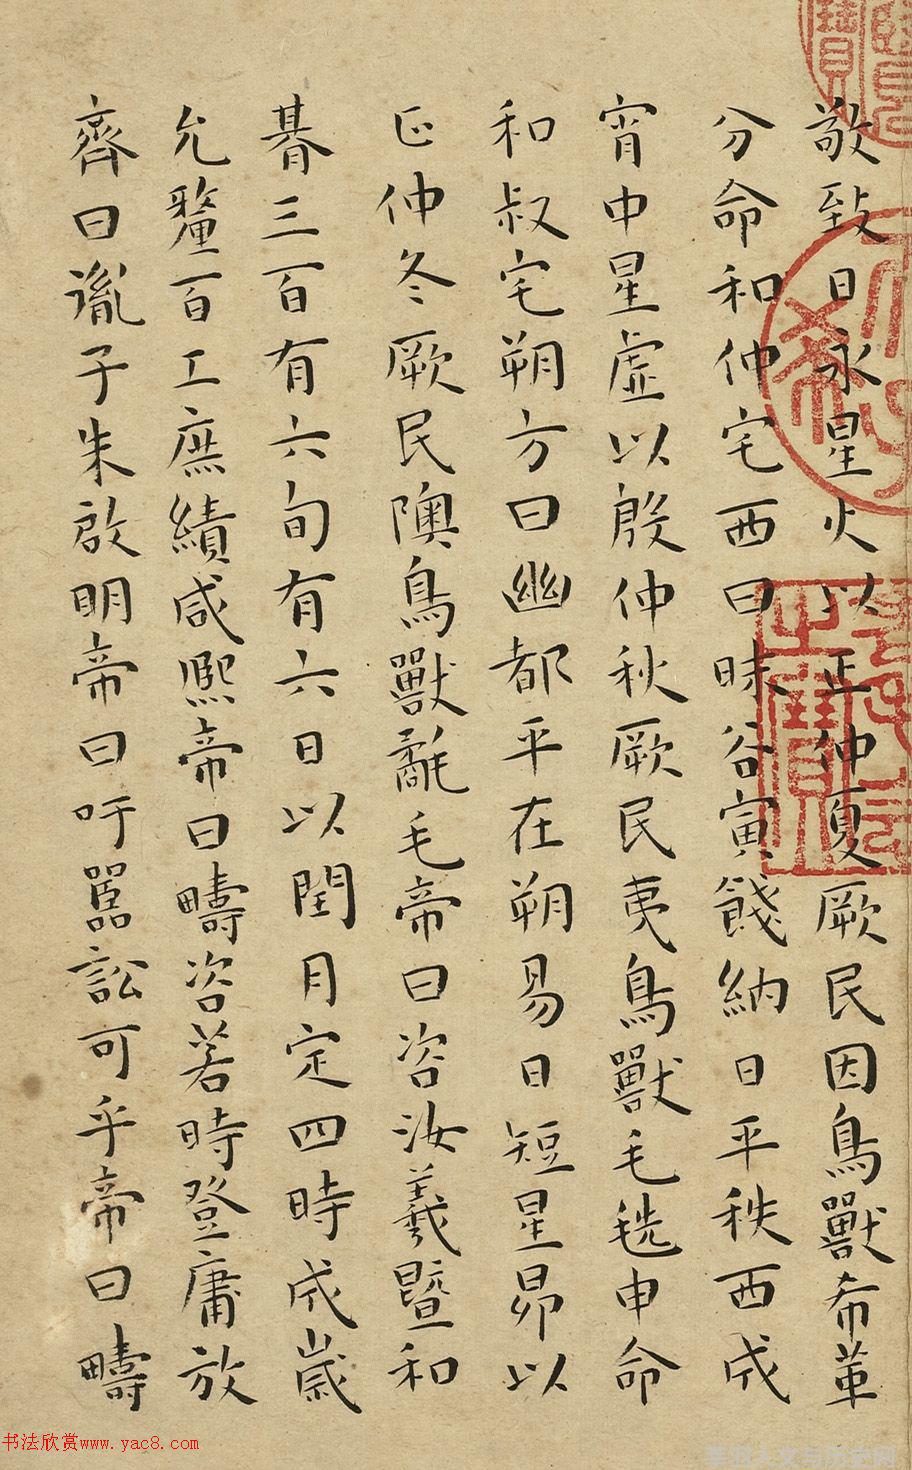 敬致日永星火以正仲夏厥民因鳥獸希革
分命和仲宅西曰昧谷寅餞納日平秩西成
宵中星虛以殷仲秋厥民夷鳥獸毛毨申命
和叔宅朔方曰幽都平在朔易日短星昴以
正仲冬厥民隩鳥獸氄毛帝曰咨汝羲暨和
朞三百有六旬有六日以閏月定四時成歲
允釐百工庶績咸熙帝曰疇咨若時登庸放
齊曰胤子朱啟明帝曰吁嚚訟可乎帝曰疇
书法欣赏www.yac8.com